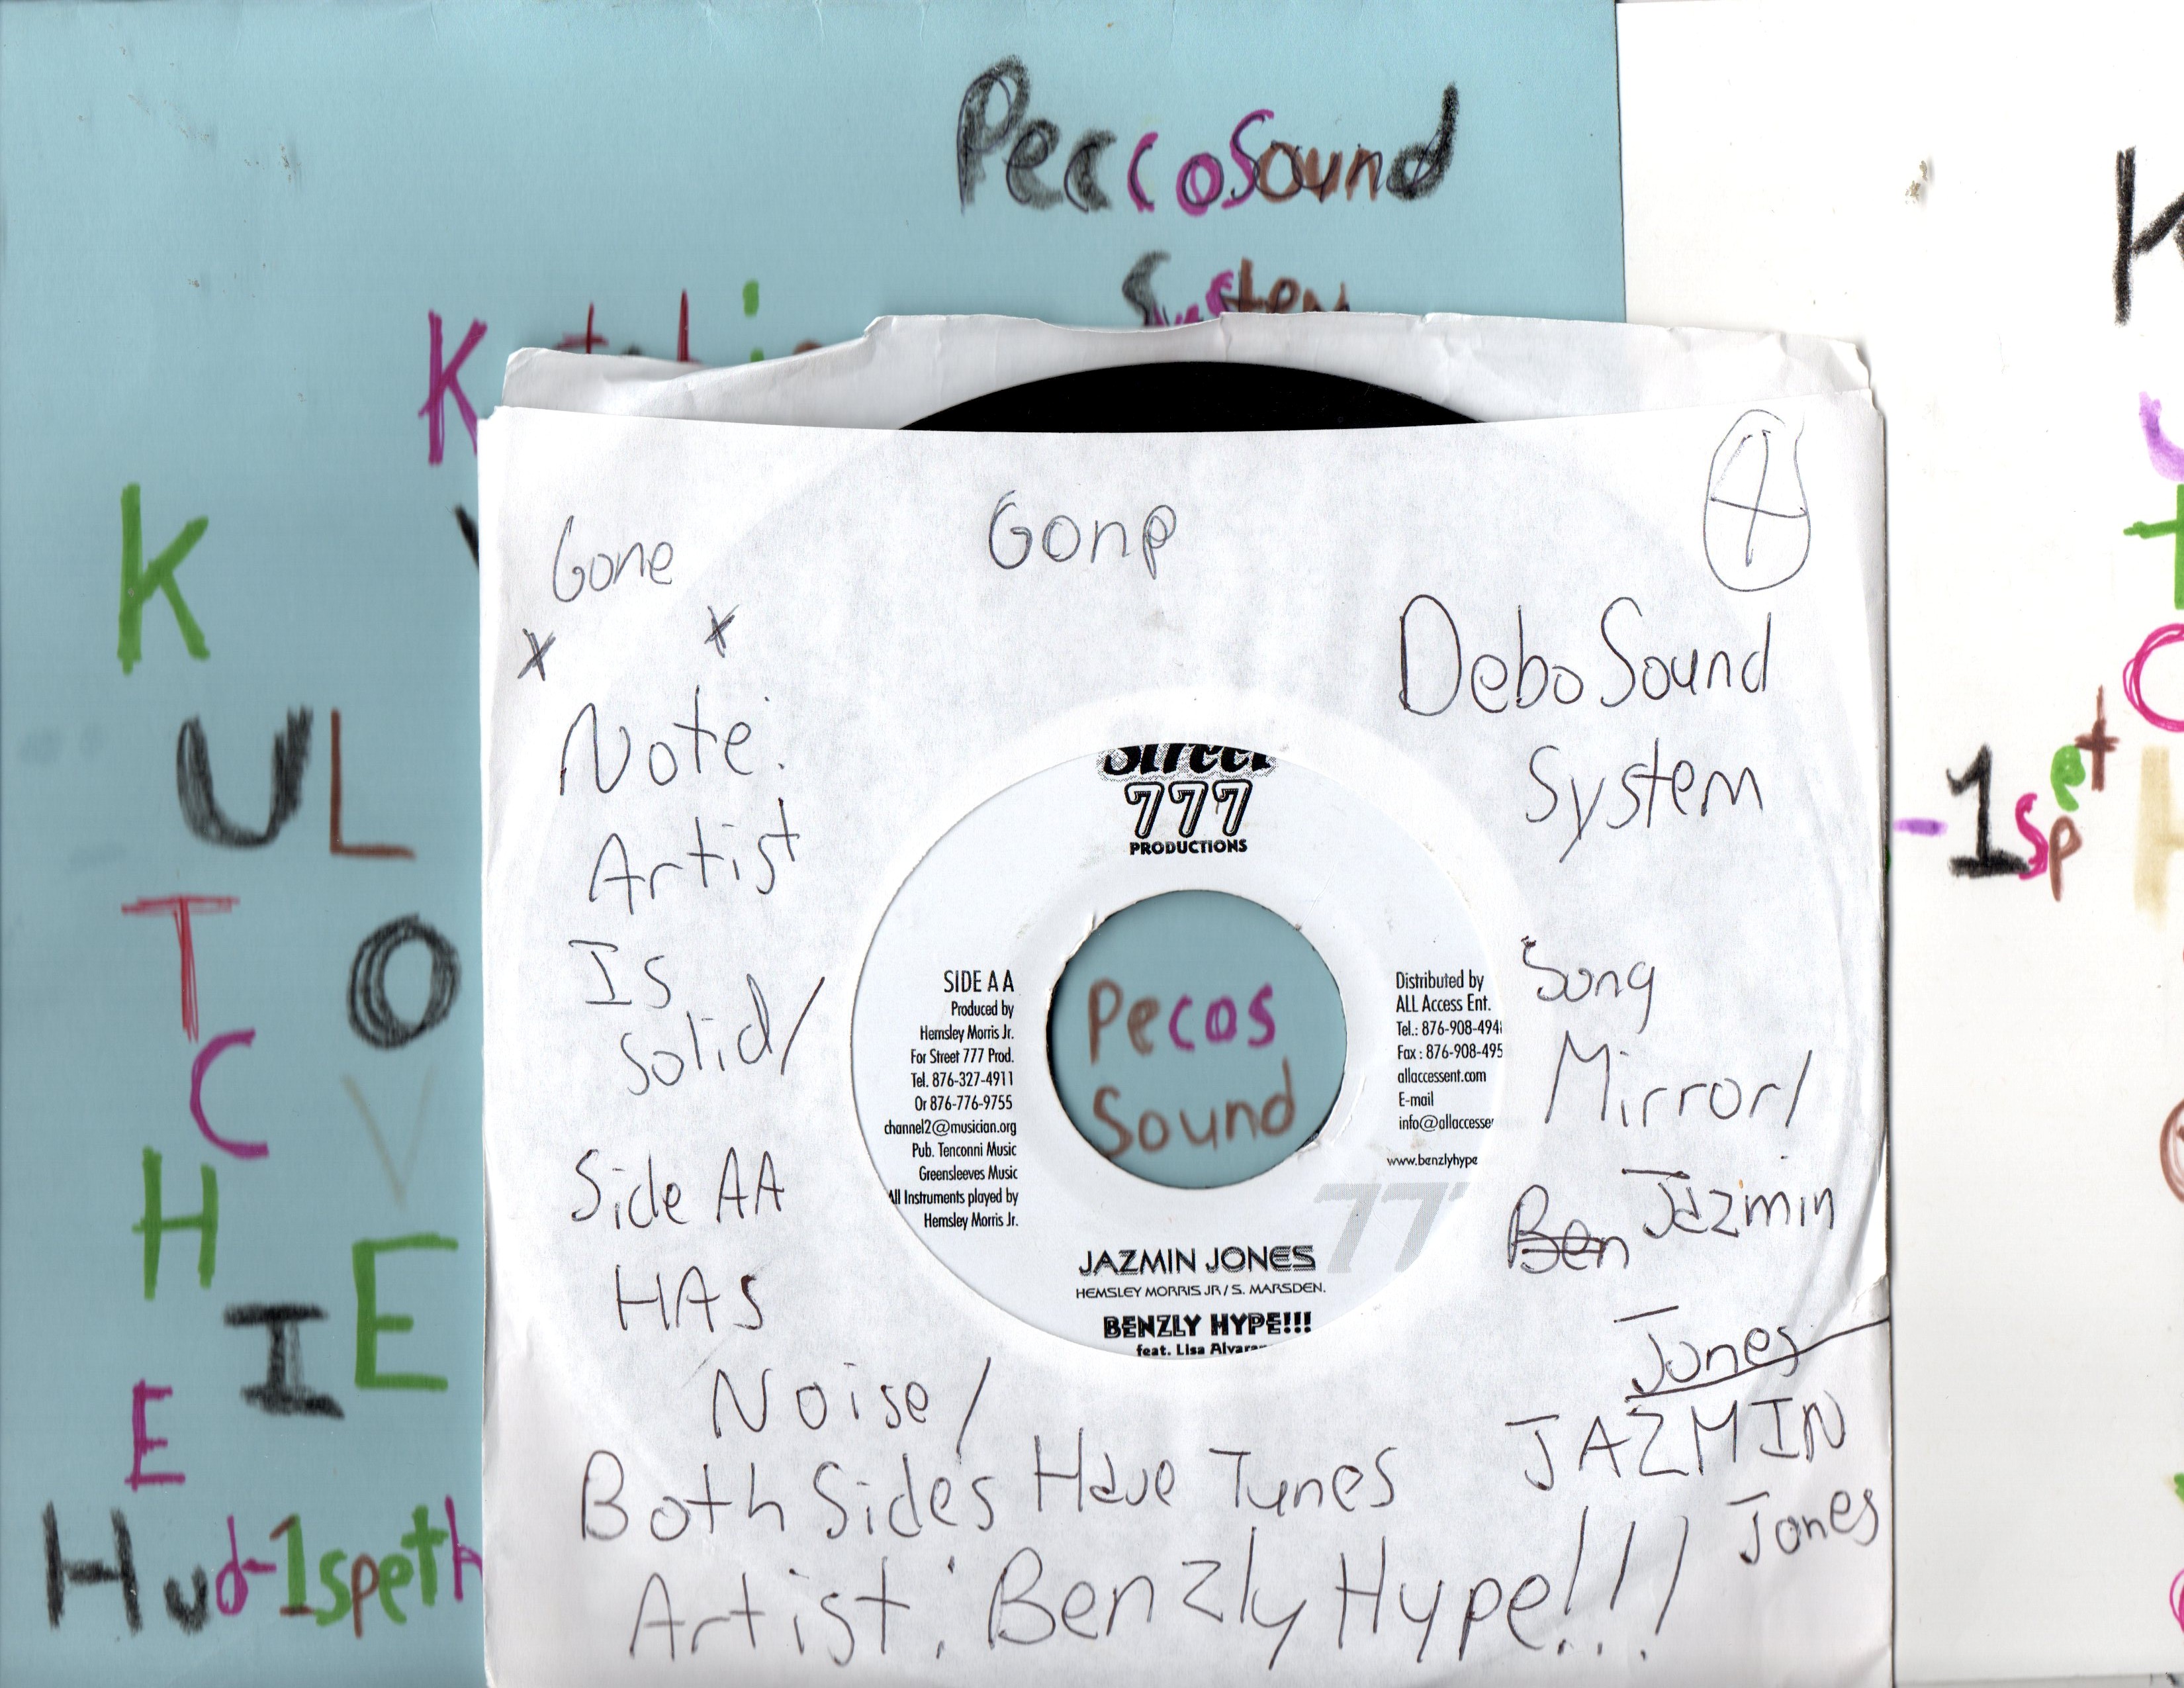 PeccoSound
System
K
K
U L
T O
C V
H E
I
E
Hud-1speth
Gone
Gone
x x
Note:
Artist
Is
Solid/
Side AA
HAS
Noise/
Both Sides Have Tunes
Artist: Benzly Hype!!!
4
Debo Sound
System
Song
Mirror/
Ben Jazmin
Jones
JAZMIN
Jones
Street
777
PRODUCTIONS
SIDE AA
Produced by
Hemsley Morris Jr.
For Street 777 Prod.
Tel. 876-327-4911
Or 876-776-9755
channel2@musician.org
Pub. Tenconni Music
Greensleeves Music
All Instruments played by
Hemsley Morris Jr.
Pecos
Sound
Distributed by
ALL Access Ent.
Tel.: 876-908-494
Fax : 876-908-495
allaccessent.com
E-mail
info@allaccesse
www.benzlyhype
777
JAZMIN JONES
HEMSLEY MORRIS JR / S. MARSDEN.
BENZLY HYPE!!!
feat. Lisa Alvara
K
-1spet